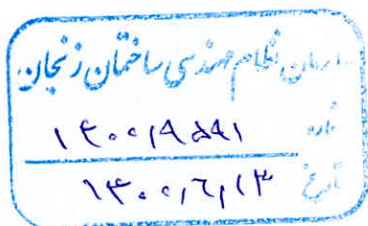 سازمان نظام مهندسی ساختمان زنجان
شماره ۱۴۰۰/۹۵۹۱
تاریخ ۱۴۰۰/۶/۱۳